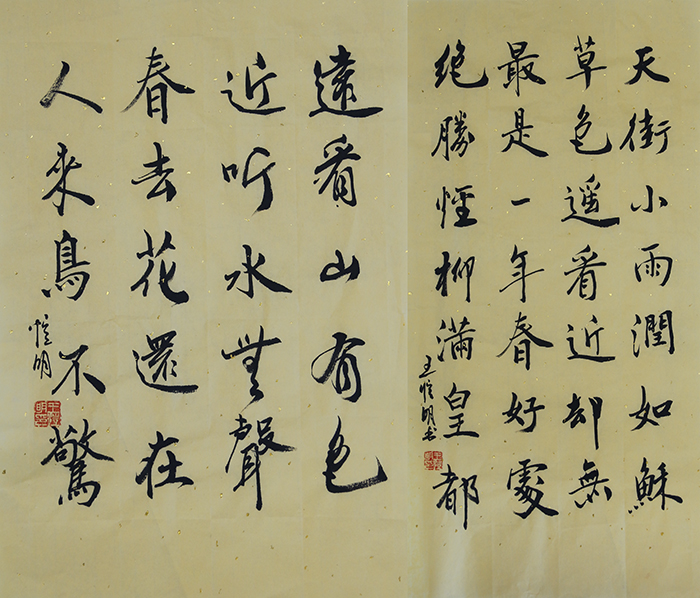 天街小雨潤如穌
草色遥看近却無
最是一年春好處
絶勝煙柳滿皇都
遠看山有色
近听水無聲
春去花還在
人來鳥不驚